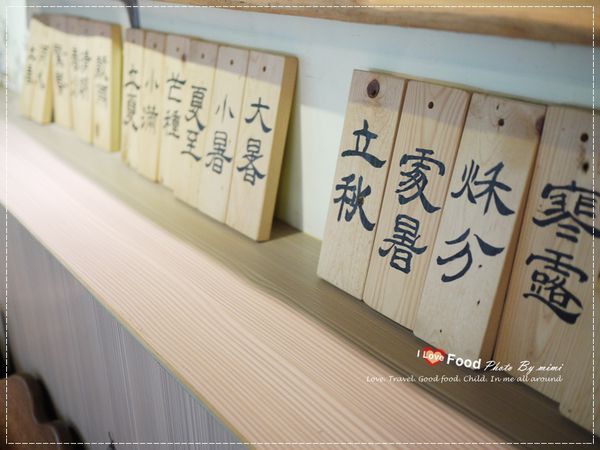 立春
雨水
穀雨
立夏
小滿
芒種
夏至
小暑
大暑
立秋
處暑
秌分
寒露
I Love Food Photo By mimi
Love. Travel. Good food. Child. In me all around